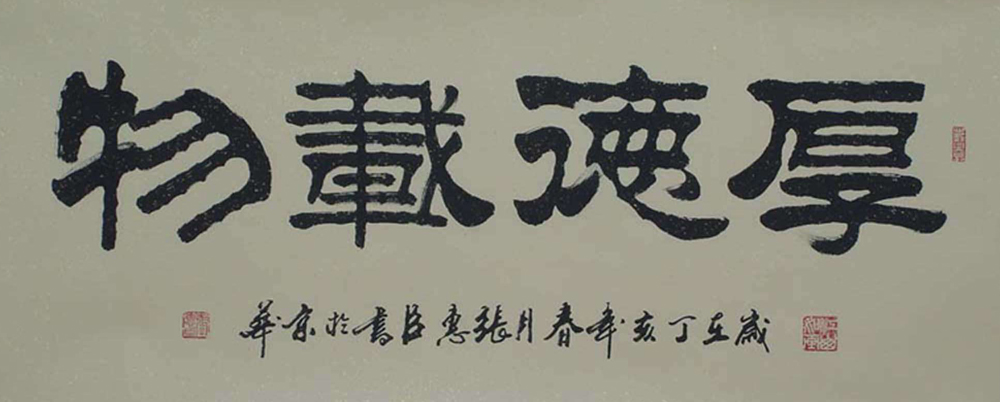 厚德載物
歲在丁亥年春月張惠臣書於京華